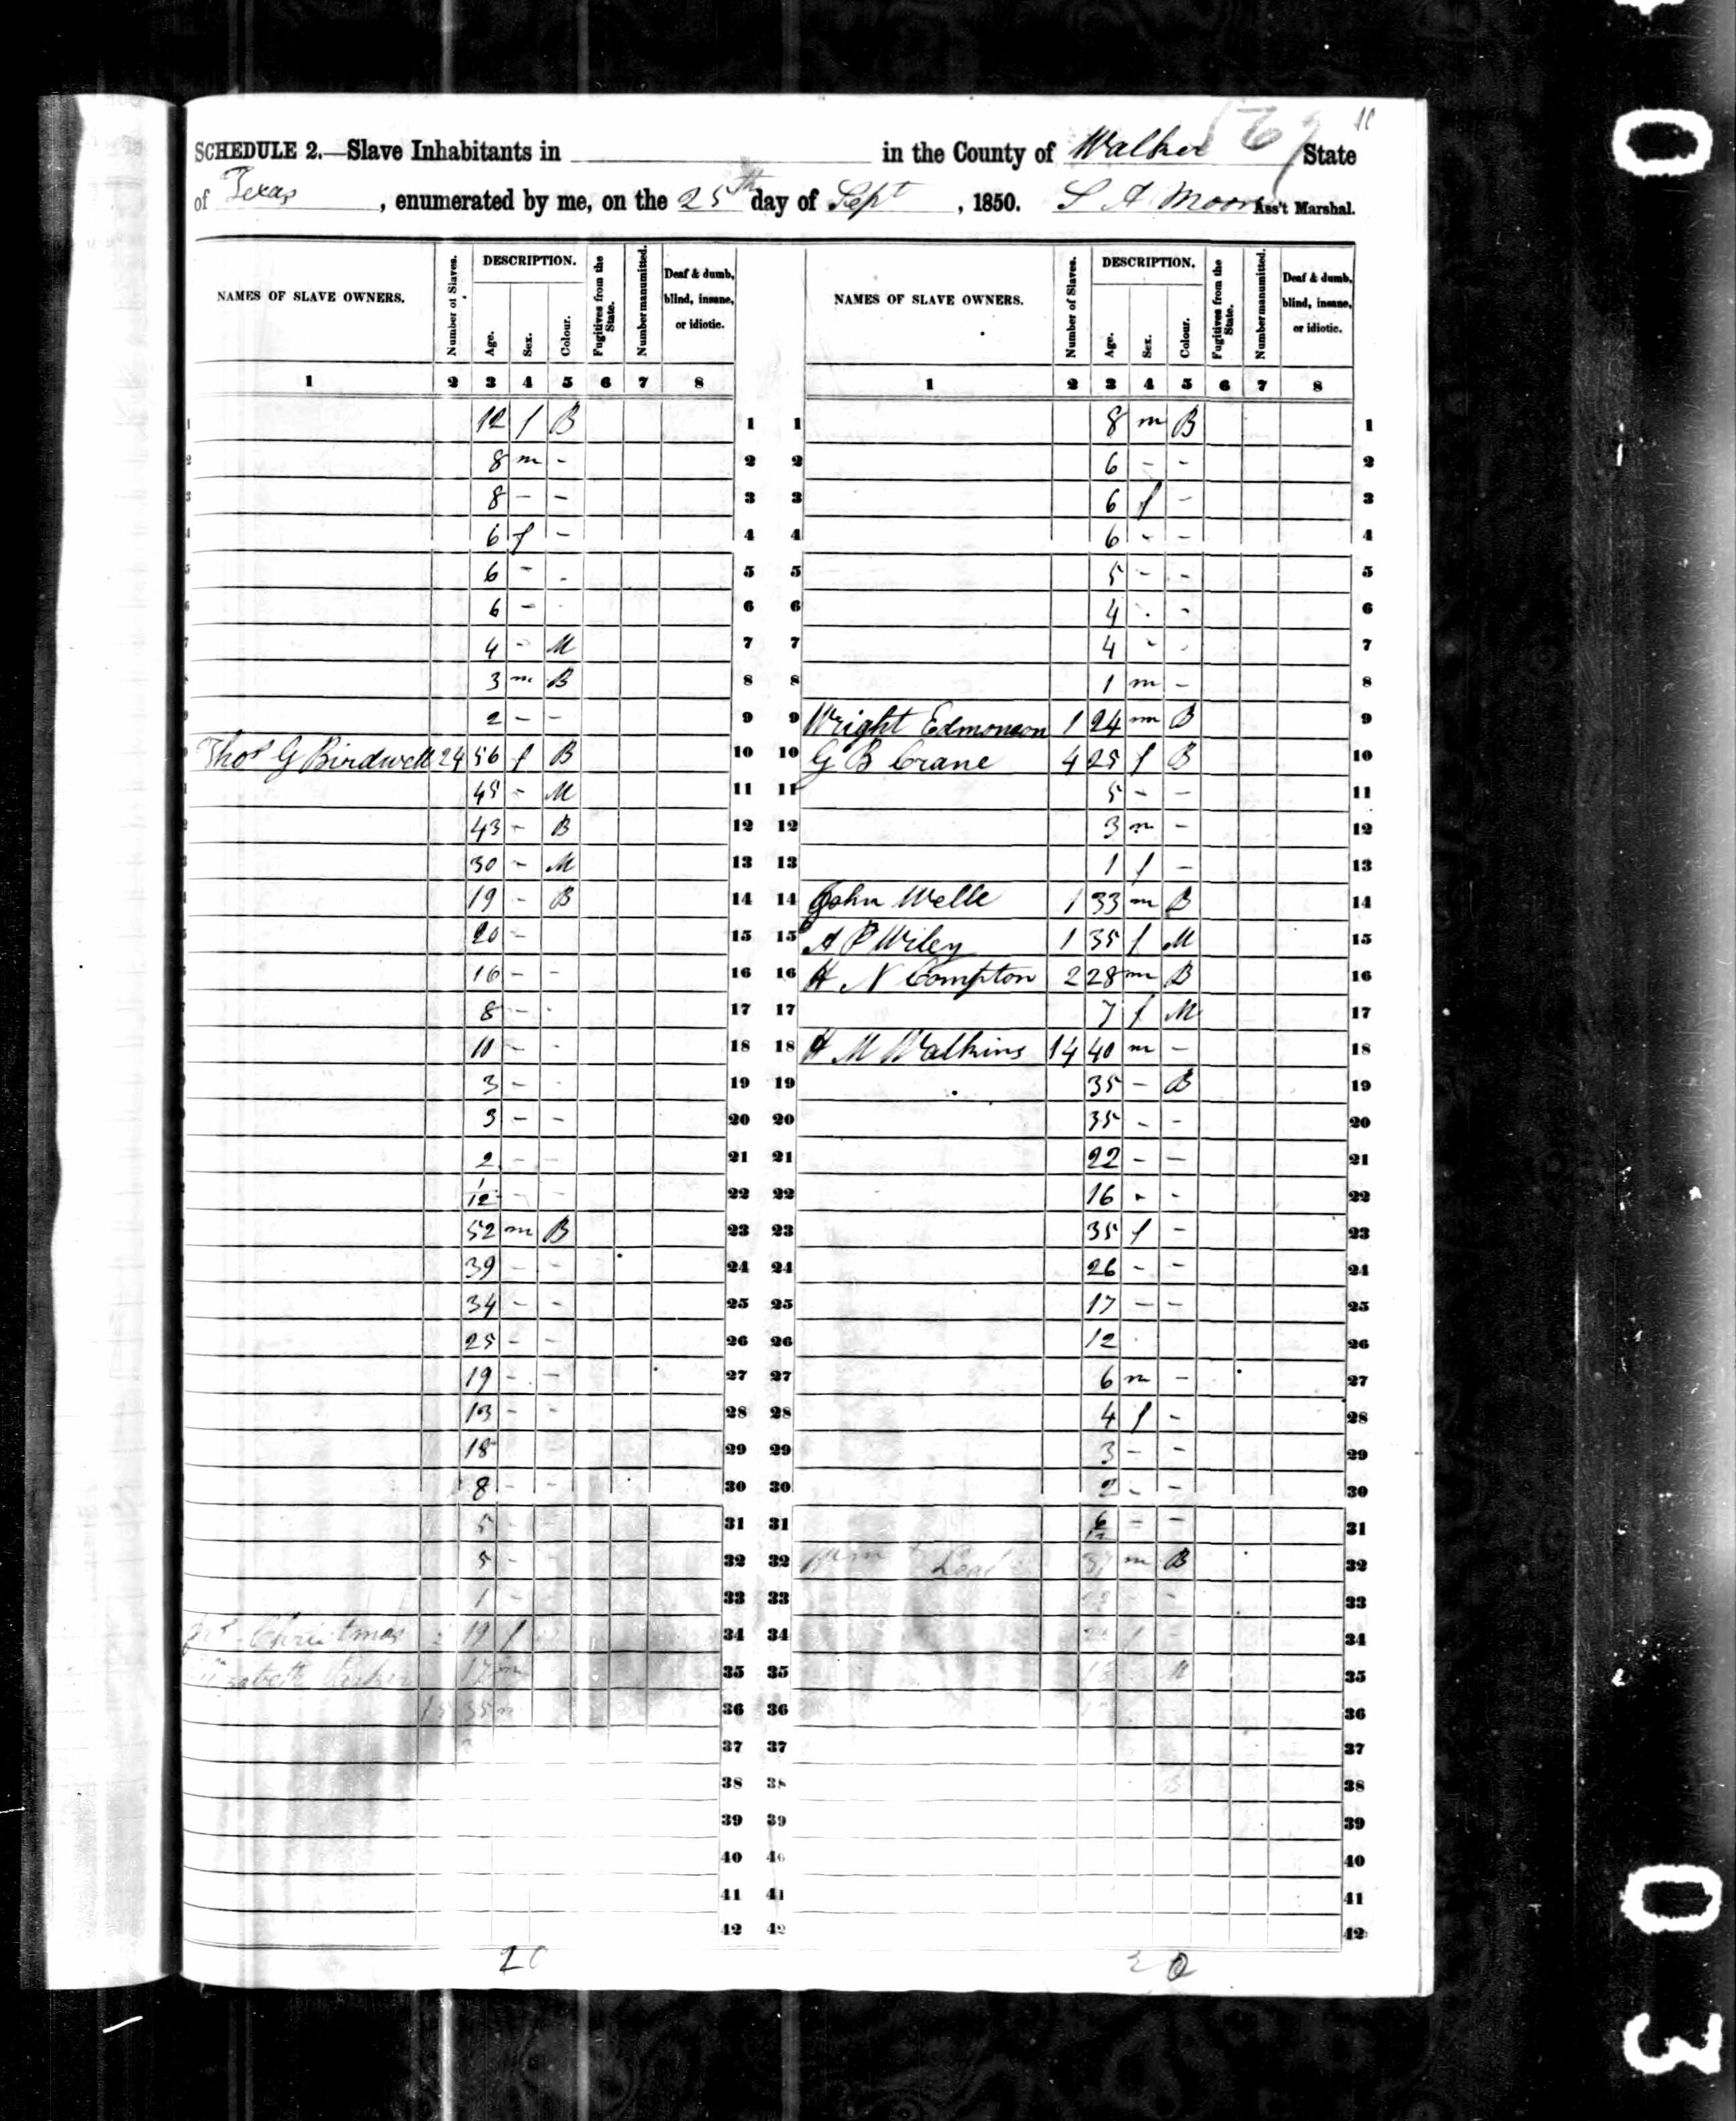 SCHEDULE 2.—Slave Inhabitants in in the County of Walker State
of Texas, enumerated by me, on the 25th day of Sept, 1850. S A Moore Ass't Marshal.
NAMES OF SLAVE OWNERS. Number of Slaves. DESCRIPTION. Age. Sex. Colour. Fugitives from the State. Number manumitted. Deaf & dumb, blind, insane, or idiotic. NAMES OF SLAVE OWNERS. Number of Slaves. DESCRIPTION. Age. Sex. Colour. Fugitives from the State. Number manumitted. Deaf & dumb, blind, insane, or idiotic.
1 2 3 4 5 6 7 8 1 2 3 4 5 6 7 8
12 f B 1 1 8 m B 1
8 m - 2 2 6 - - 2
8 - - 3 3 6 f - 3
6 f - 4 4 6 - - 4
6 - - 5 5 5 - - 5
6 - - 6 6 4 - - 6
4 - M 7 7 4 - - 7
3 m B 8 8 1 m - 8
2 - - 9 9 Wright Edmonson 1 24 m B 9
Thos G Birdwell 24 56 f B 10 10 G B Crane 4 25 f B 10
45 - M 11 11 5 - - 11
43 - B 12 12 3 m - 12
30 - M 13 13 1 f - 13
19 - B 14 14 John Wells 1 33 m B 14
20 - 15 15 A P Wiley 1 35 f M 15
16 - - 16 16 H N Compton 2 28 m B 16
8 - - 17 17 7 f M 17
10 - - 18 18 H M Watkins 14 40 m - 18
3 - - 19 19 35 - B 19
3 - - 20 20 35 - - 20
2 - - 21 21 22 - - 21
1/12 - - 22 22 16 - - 22
52 m B 23 23 35 f - 23
39 - - 24 24 26 - - 24
34 - - 25 25 17 - - 25
25 - - 26 26 12 26
19 - - 27 27 6 m - 27
13 - - 28 28 4 f - 28
18 29 29 3 - - 29
8 - - 30 30 2 - - 30
5 - 31 31 6/12 - - 31
5 - 32 32 m B 32
1 - 33 33 33
Christmas 19 f 34 34 f - 34
17 m 35 35 M 35
35 m 36 36 36
37 37 37
38 38 38
39 39 39
40 40 40
41 41 41
42 42 42